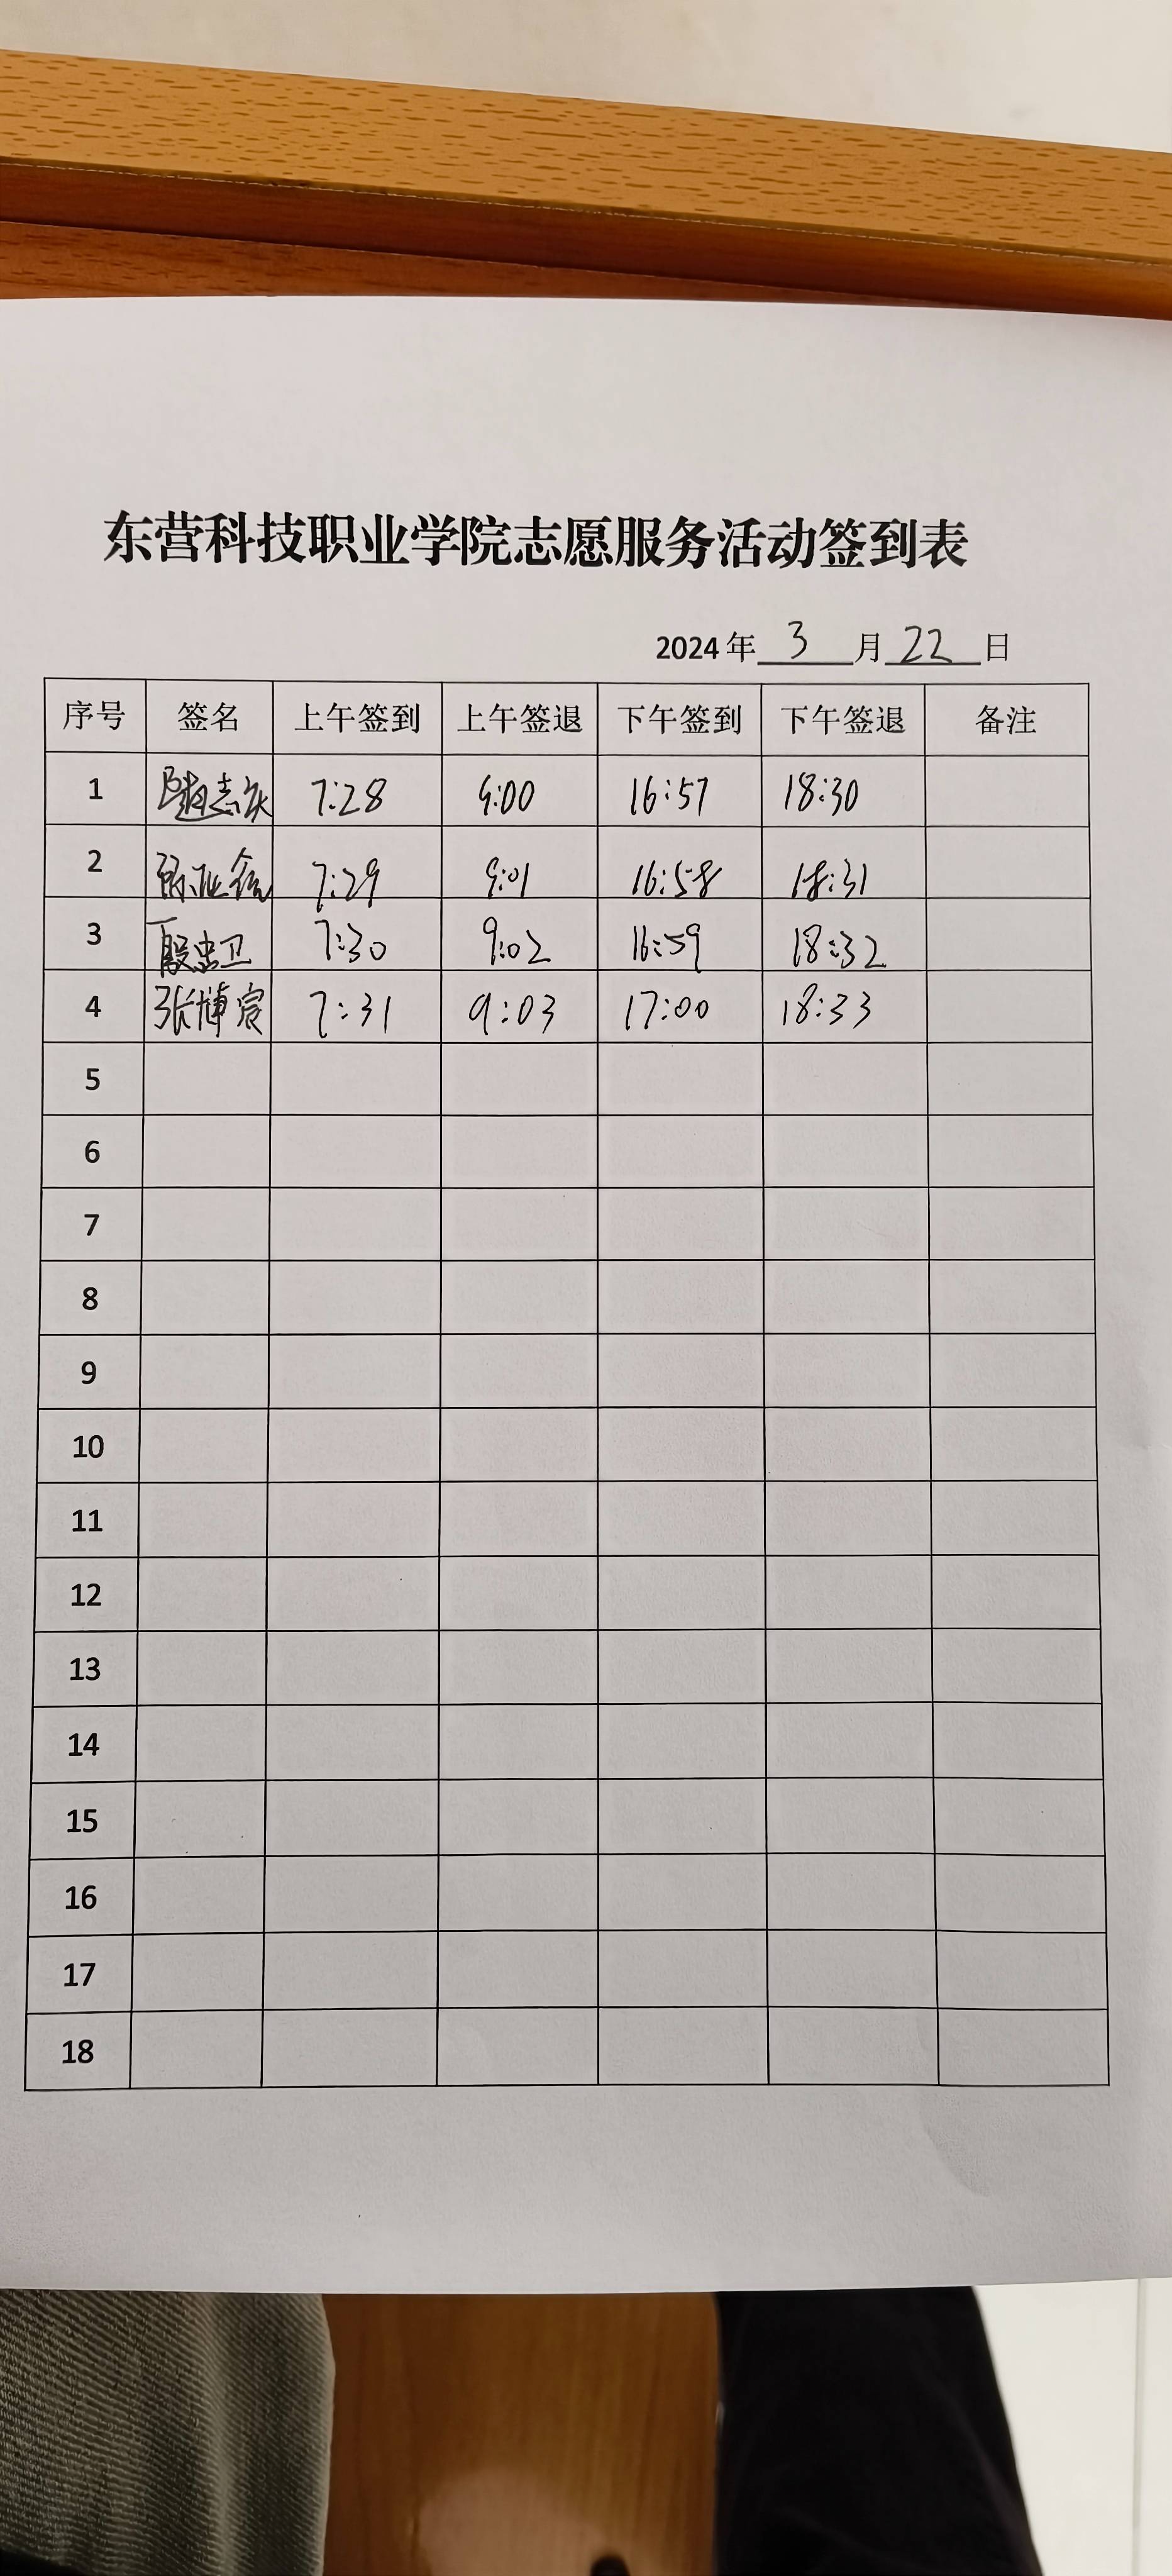 东营科技职业学院志愿服务活动签到表
2024年 3 月 22 日
序号 签名 上午签到 上午签退 下午签到 下午签退 备注
1 志 7:28 9:00 16:57 18:30
2 7:29 9:01 16:58 18:31
3 殷忠卫 7:30 9:02 16:59 18:32
4 张博宸 7:31 9:03 17:00 18:33
5
6
7
8
9
10
11
12
13
14
15
16
17
18